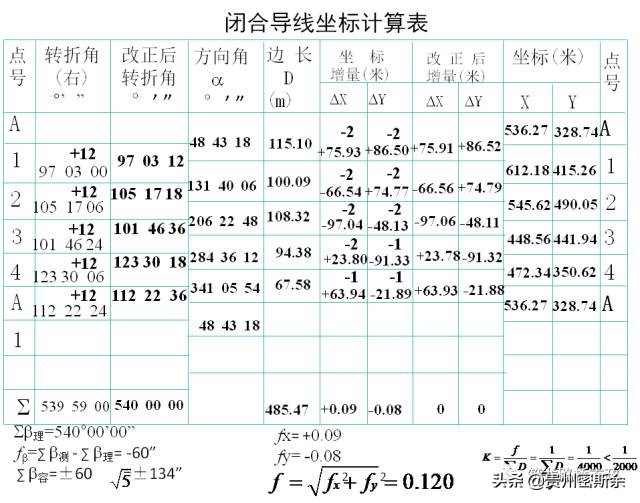 闭合导线坐标计算表
点号 转折角(右)° ′ ″ 改正后转折角 ° ′ ″ 方向角 α ° ′ ″ 边 长 D (m) 坐 标 增量(米) 改 正 后 增量(米) 坐标(米) 点号
ΔX ΔY ΔX ΔY X Y
A 536.27 328.74 A
48 43 18 115.10 -2 +75.93 -2 +86.50 +75.91 +86.52
1 +12 97 03 00 97 03 12 612.18 415.26 1
131 40 06 100.09 -2 -66.54 -2 +74.77 -66.56 +74.79
2 +12 105 17 06 105 17 18 545.62 490.05 2
206 22 48 108.32 -2 -97.04 -2 -48.13 -97.06 -48.11
3 +12 101 46 24 101 46 36 448.56 441.94 3
284 36 12 94.38 -2 +23.80 -1 -91.33 +23.78 -91.32
4 +12 123 30 06 123 30 18 472.34 350.62 4
341 05 54 67.58 -1 +63.94 -1 -21.89 +63.93 -21.88
A +12 112 22 24 112 22 36 536.27 328.74 A
48 43 18
1
Σ 539 59 00 540 00 00 485.47 +0.09 -0.08 0 0
Σβ理=540°00'00”
fβ=Σβ测-Σβ理= -60”
Σβ容=±60 √5 ±134”
fx= +0.09
fy= -0.08
f = √fx²+fy² = 0.120
K = f/ΣD = 1/ΣD = 1/4000 < 1/2000
头条 @贵州密斯余